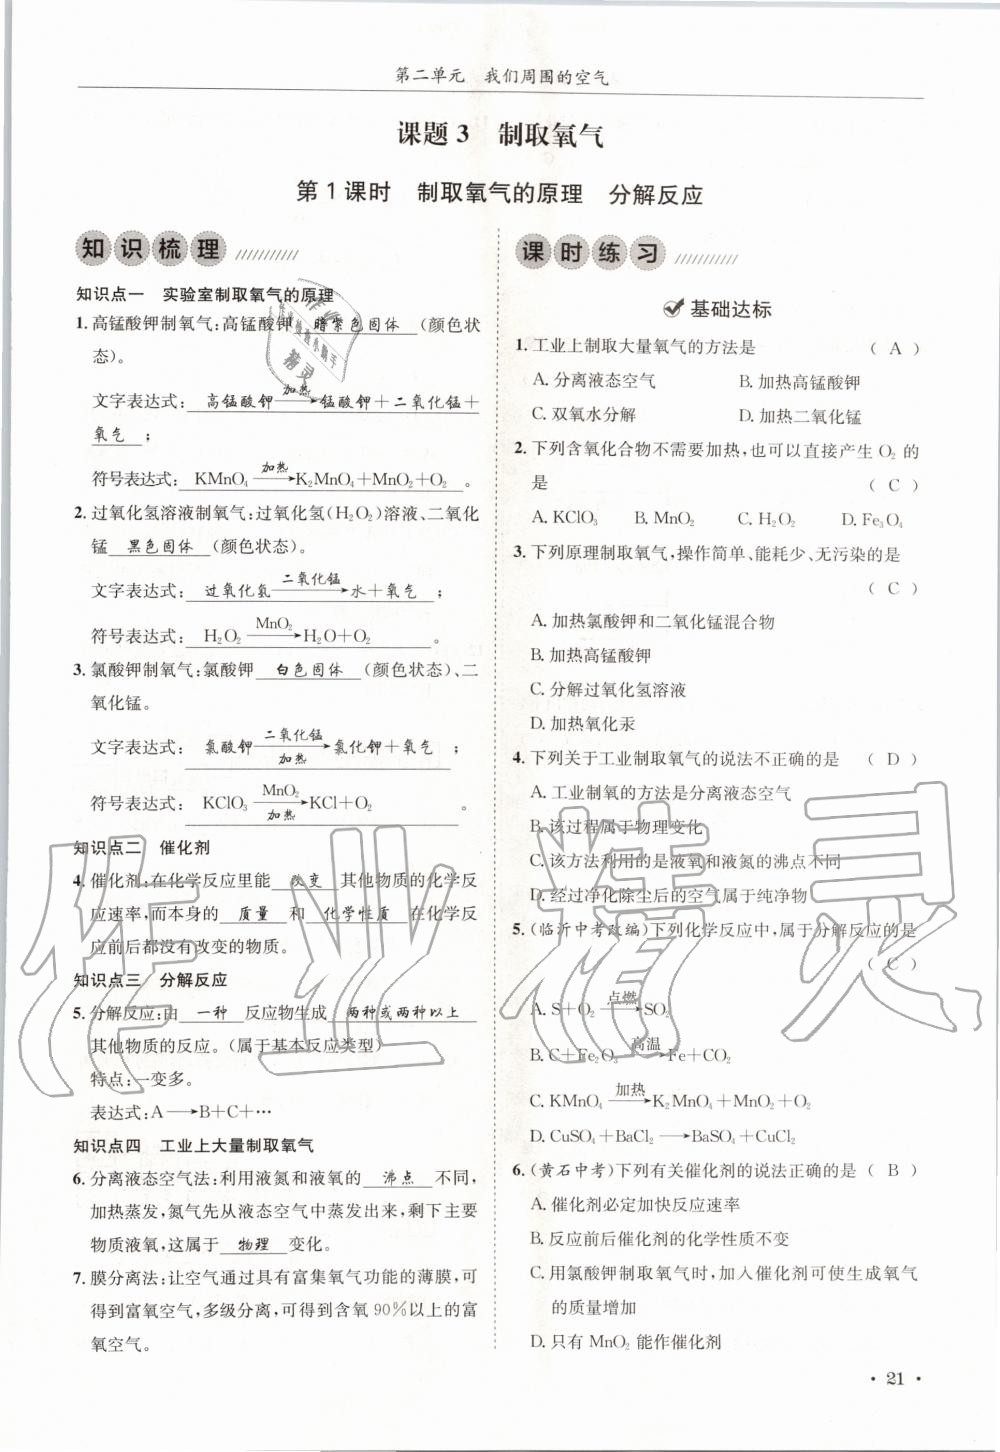 第二单元　我们周围的空气
课题 3　制取氧气
第 1 课时　制取氧气的原理　分解反应
知识梳理
知识点一　实验室制取氧气的原理
1. 高锰酸钾制氧气:高锰酸钾 暗紫色固体 (颜色状
态)。
文字表达式: 高锰酸钾 —加热→ 锰酸钾+二氧化锰+
氧气 ;
符号表达式: KMnO₄ —加热→ K₂MnO₄+MnO₂+O₂ 。
2. 过氧化氢溶液制氧气:过氧化氢(H₂O₂)溶液、二氧化
锰 黑色固体 (颜色状态)。
文字表达式: 过氧化氢 —二氧化锰→ 水+氧气 ;
符号表达式: H₂O₂ —MnO₂→ H₂O+O₂ 。
3. 氯酸钾制氧气:氯酸钾 白色固体 (颜色状态)、二
氧化锰。
文字表达式: 氯酸钾 —二氧化锰/加热→ 氯化钾+氧气 ;
符号表达式: KClO₃ —MnO₂/加热→ KCl+O₂ 。
知识点二　催化剂
4. 催化剂:在化学反应里能 改变 其他物质的化学反
应速率,而本身的 质量 和 化学性质 在化学反
应前后都没有改变的物质。
知识点三　分解反应
5. 分解反应:由 一种 反应物生成 两种或两种以上
其他物质的反应。(属于基本反应类型)
特点:一变多。
表达式:A⟶B+C+…
知识点四　工业上大量制取氧气
6. 分离液态空气法:利用液氮和液氧的 沸点 不同,
加热蒸发,氮气先从液态空气中蒸发出来,剩下主要
物质液氧,这属于 物理 变化。
7. 膜分离法:让空气通过具有富集氧气功能的薄膜,可
得到富氧空气,多级分离,可得到含氧 90%以上的富
氧空气。
课时练习
基础达标
1. 工业上制取大量氧气的方法是 ( A )
A. 分离液态空气　B. 加热高锰酸钾
C. 双氧水分解　D. 加热二氧化锰
2. 下列含氧化合物不需要加热,也可以直接产生 O₂ 的
是 ( C )
A. KClO₃　B. MnO₂　C. H₂O₂　D. Fe₃O₄
3. 下列原理制取氧气,操作简单、能耗少、无污染的是
( C )
A. 加热氯酸钾和二氧化锰混合物
B. 加热高锰酸钾
C. 分解过氧化氢溶液
D. 加热氧化汞
4. 下列关于工业制取氧气的说法不正确的是 ( D )
A. 工业制氧的方法是分离液态空气
B. 该过程属于物理变化
C. 该方法利用的是液氧和液氮的沸点不同
D. 经过净化除尘后的空气属于纯净物
5. (临沂中考改编)下列化学反应中,属于分解反应的是
( C )
A. S+O₂ —点燃→ SO₂
B. C+Fe₂O₃ —高温→ Fe+CO₂
C. KMnO₄ —加热→ K₂MnO₄+MnO₂+O₂
D. CuSO₄+BaCl₂⟶BaSO₄+CuCl₂
6. (黄石中考)下列有关催化剂的说法正确的是 ( B )
A. 催化剂必定加快反应速率
B. 反应前后催化剂的化学性质不变
C. 用氯酸钾制取氧气时,加入催化剂可使生成氧气
的质量增加
D. 只有 MnO₂ 能作催化剂
· 21 ·
作业精灵